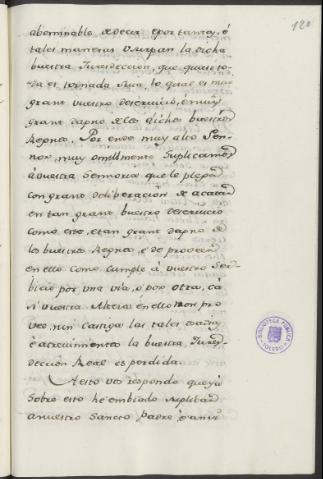 120
abominable de decir e portantas, é
tales maneras usurpan la dicha
buestra Jurisdiccion, que quasi to-
da es tornada suia, lo qual es mui
grant vuestro deservicio, e muy
grant dapno de los dichos buestros
Regnos, Por ende muy alto Sen-
nor, muy omillmente suplicamos
á vuestra Sennoria que le plega
con grant deliberacion de acatar
en tan grant buestro deservicio
como este, e tan grant dapno de
los buestros Regnos, e de proveer
en ello como cumple á vuestro ser-
bicio por una via, o por otra, ca
si vuestra Alteza en ello non pro
vee, nin castiga las tales osadias
e atrevimientos la buestra Juris-
dicción Real es perdida.
A esto vos respondo que yá
sobre esto he embiado suplicar
a nuestro Sancto Padre, é a mi
BIBLIOTECA PUBLICA
TOLEDO